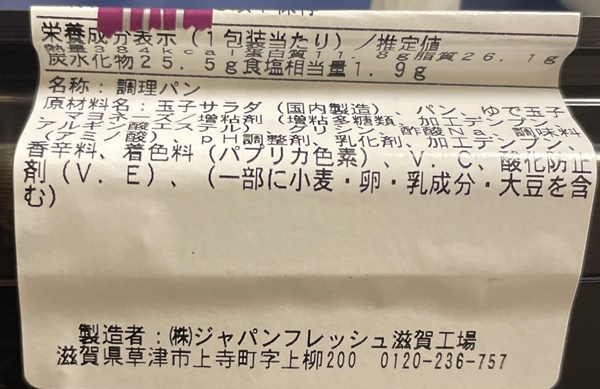 栄養成分表示（1包装当たり）／推定値
熱量384kcal蛋白質11.8g脂質26.1g
炭水化物25.5g食塩相当量1.9g
名称：調理パン
原材料名：玉子サラダ（国内製造）、パン、ゆで玉子、
マヨネーズ／増粘剤（増粘多糖類、加工デンプン、
アルギン酸エステル）、グリシン、酢酸Na、調味料
（アミノ酸）、pH調整剤、乳化剤、加工デンプン、
香辛料、着色料（パプリカ色素）、V．C、酸化防止
剤（V．E）、（一部に小麦・卵・乳成分・大豆を含
む）
製造者：㈱ジャパンフレッシュ滋賀工場
滋賀県草津市上寺町字上柳200 0120-236-757